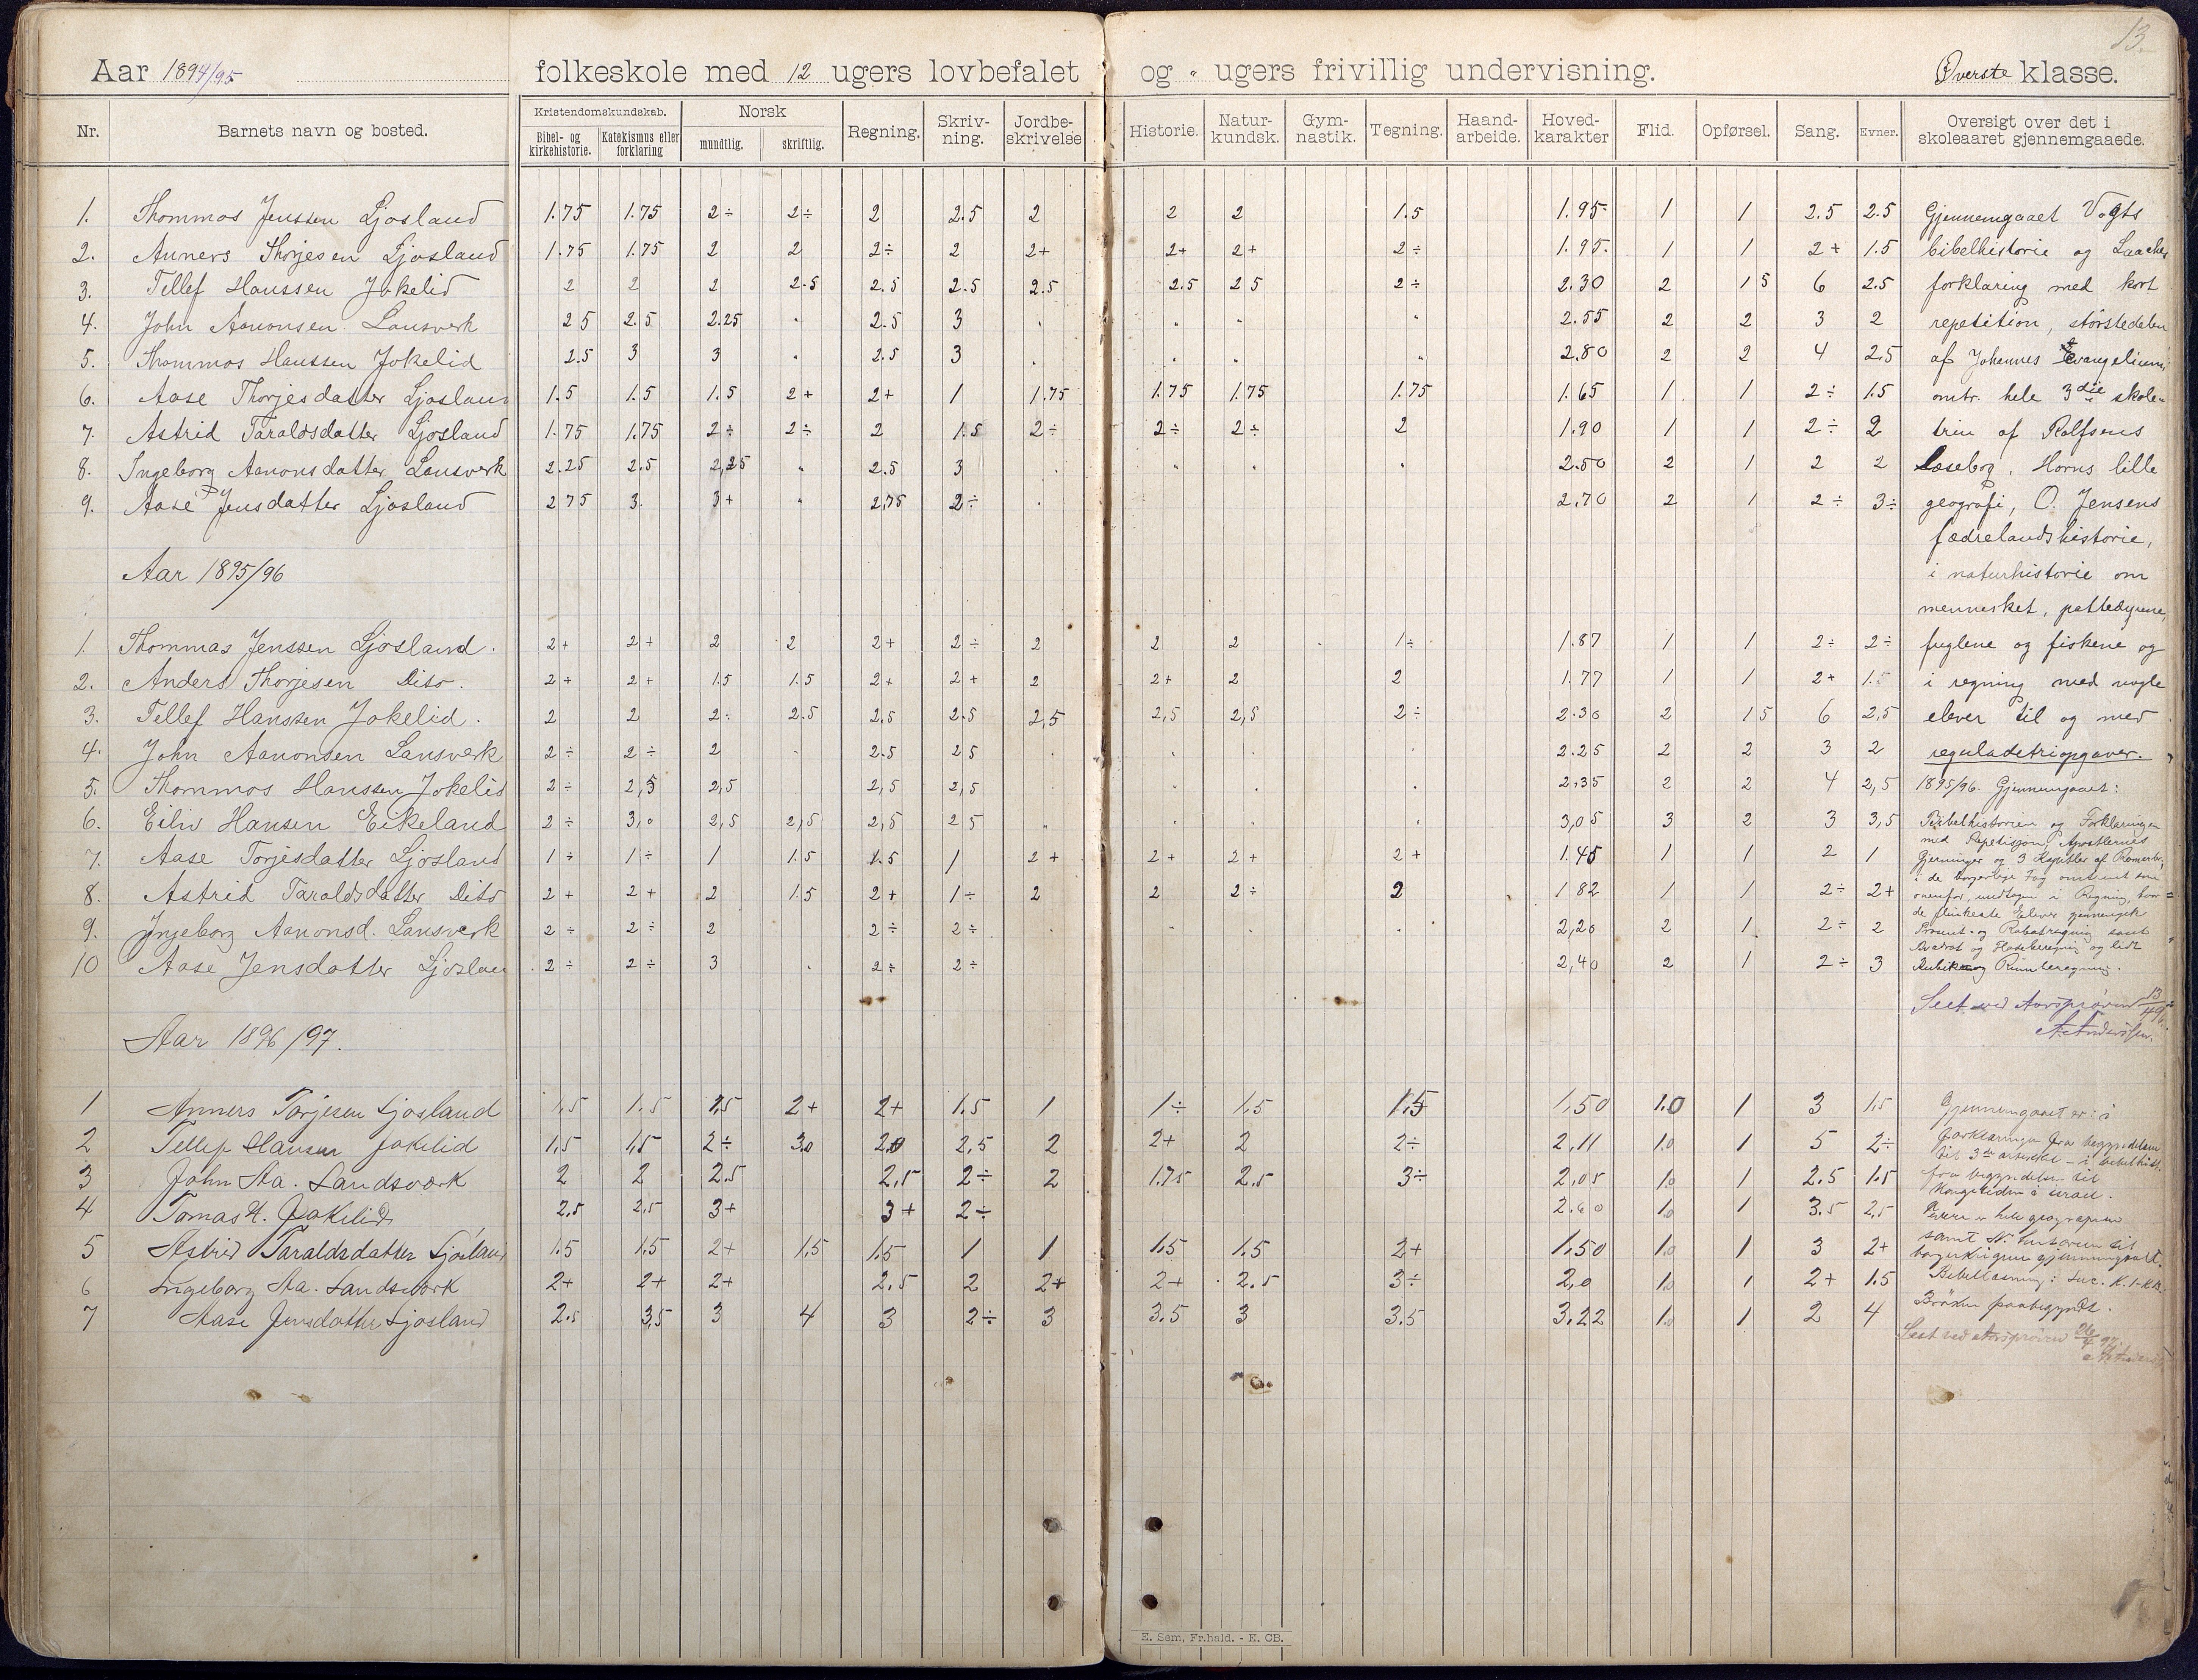 13.
Aar 1894/95 folkeskole med 12 ugers lovbefalet og " ugers frivillig undervisning. Øverste klasse.
Nr. Barnets navn og bosted. Kristendomskundskab. Bibel- og kirkehistorie. Katekismus eller forklaring Norsk mundtlig. skriftlig. Regning. Skriv-ning. Jordbe-skrivelse Historie. Natur-kundsk. Gym-nastik. Tegning. Haand-arbeide. Hoved-karakter Flid. Opførsel. Sang. Evner. Oversigt over det i skoleaaret gjennemgaaede.
1. Thommos Jenssen Ljosland 1.75 1.75 2÷ 2÷ 2 2.5 2 2 2 1.5 1.95 1 1 2.5 2.5 Gjennemgaaet Vogts
2. Anners Thorjesen Ljosland 1.75 1.75 2 2 2÷ 2 2+ 2+ 2+ 2÷ 1.95 1 1 2+ 1.5 bibelhistorie og
3. Tellef Hanssen Jokelid 2 2 2 2.5 2.5 2.5 2.5 2.5 2 5 2÷ 2.30 2 1 5 6 2.5 forklaring med kort
4. John Aanonsen Lansverk 2 5 2.5 2.25 " 2.5 3 . " " " 2.55 2 2 3 2 repetition, størstedelen
5. Thommos Hanssen Jokelid 2.5 3 3 " 2.5 3 . " " " 2.80 2 2 4 2.5 af Johannes Evangelium,
6. Aase Thorjesdatter Ljosland 1.5 1.5 1.5 2+ 2+ 1 1.75 1.75 1.75 1.75 1.65 1 1 2÷ 1.5 omtr. hele 3die skole-
7. Astrid Taraldsdatter Ljosland 1.75 1.75 2÷ 2÷ 2 1.5 2÷ 2÷ 2÷ 2 1.90 1 1 2÷ 2 trin af Rolfsens
8. Ingeborg Aanonsdatter Lansverk 2.25 2.5 2,25 " 2.5 3 . " " " 2.50 2 1 2 2 Læsebog, Horns lille
9. Aase Jensdatter Ljosland 2 75 3. 3+ " 2,75 2÷ . 2.70 2 1 2÷ 3÷ geografi, O. Jensens
fædrelandshistorie,
Aar 1895/96 i naturhistorie om
mennesket, pattedyrene,
1. Thommas Jenssen Ljosland. 2+ 2+ 2 2 2+ 2÷ 2 2 2 1÷ 1.87 1 1 2÷ 2÷ fuglene og fiskene og
2. Anders Thorjesen Dito. 2+ 2+ 1.5 1.5 2+ 2+ 2 2+ 2 2 1.77 1 1 2+ 1.5 i regning med nogle
3. Tellef Hanssen Jokelid. 2 2 2÷ 2.5 2,5 2.5 2,5 2,5 2,5 2÷ 2.30 2 1 5 6 2,5 elever til og med
4. John Aanonsen Lansverk 2÷ 2÷ 2 . 2.5 2 5 . . . . 2.25 2 2 3 2 reguladetriopgaver.
5. Thommos Hanssen Jokelid 2÷ 2,5 2,5 2,5 2,5 . . . . 2.35 2 2 4 2,5 1895/96. Gjennemgaaet:
6. Eiliv Hansen Eikeland 2÷ 3,0 2,5 2,5 2,5 2 5 . . . . 3,05 3 2 3 3,5 Bibelhistorien og Forklaringen
med Repetisjon, Apostlernes
7. Aase Torjesdatter Ljosland 1÷ 1÷ 1 1.5 1.5 1 2+ 2+ 2+ 2+ 1.45 1 1 2 1 Gjerninger og 3 Kapitler af Romerbr,
i de borgerlige Fag omtrent som
8. Astrid Taraldsdatter Dito 2+ 2+ 2 1.5 2+ 1÷ 2 2 2÷ 2 1 82 1 1 2÷ 2+ ovenfor, undtagen i Regning, hvor
de flinkeste Elever gjennemgik
9. Ingeborg Aanonsd. Lansverk 2÷ 2÷ 2 2÷ 2÷ . . . . 2,20 2 1 2÷ 2 Procent- og Rabatregning samt
Kvadrat og Fladeberegning og lidt
10 Aase Jensdatter Ljoslan 2÷ 2÷ 3 . 2÷ 2÷ 2,40 2 1 2÷ 3 Kubik og Rumberegning.
Seet ved Aarsprøven 13/4 96.
Aar 1896/97. A. Andersen.
1 Anners Torjesen Ljosland 1,5 1.5 1,5 2+ 2+ 1.5 1 1÷ 1,5 1.5 1,50 1.0 1 3 1,5 Gjennemgaaet er: i
2 Tellef Hansen Jokelid 1,5 1,5 2÷ 3.0 2.0 2,5 2 2+ 2 2÷ 2,11 1.0 1 5 2÷ forklaringen fra begyndelsen
til 3de artikel – i bibelhist.
3 John Aa. Landsværk 2 2 2.5 2,5 2÷ 2 1.75 2.5 3÷ 2,05 1.0 1 2.5 1.5 fra begyndelsen til
Kongetiden i Israel.
4 Tomas H. Jokelid 2.5 2,5 3+ 3+ 2÷ 2.60 1.0 1 3.5 2,5 hele geografien
5 Astrid Taraldsdatter Ljosland 1.5 1,5 2+ 1,5 1.5 1 1 1.5 1.5 2+ 1,50 1.0 1 3 2+ samt N. historien til
borgerkrigene gjennemgaaet.
6 Ingeborg Aa. Landsværk 2+ 2+ 2+ 2.5 2 2+ 2+ 2.5 3÷ 2,0 1.0 1 2+ 1.5 Bibellæsning: Luc. K.
7 Aase Jensdatter Ljosland 2.5 3,5 3 4 3 2÷ 3 3.5 3 3.5 3,22 1.0 1 2 4 Brøken paabegyndt.
Seet ved Aarsprøven 26/4 97.
E. Sem, Fr.hald. - E. CB.